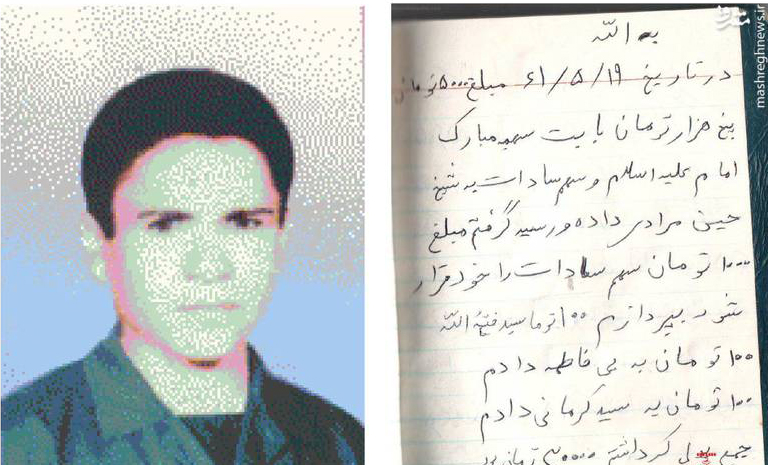 به الله
در تاریخ ۶۱/۵/۱۹ مبلغ ۵۰۰۰ تومان
پنج هزار تومان بابت سهم مبارک
امام علیه السلام و سهم سادات به شیخ
حسین مرادی داده و رسید گرفتم مبلغ
۱۰۰۰ تومان سهم سادات را خود قرار
شد بپردازم ۱۰۰ توما سید فتح الله
۱۰۰ تومان به بی فاطمه دادم
۱۰۰ تومان به سید کرمانی دادم
جمع پولی که داشتم
mashreghnews.ir